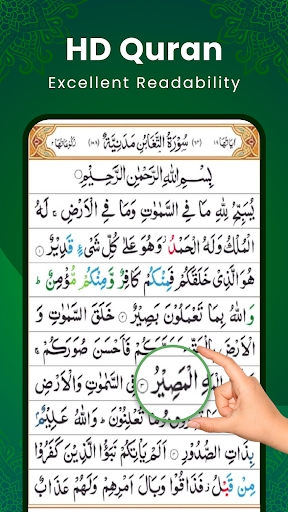 HD Quran
Excellent Readability
اٰیَاتُهَا ١٨ (٦٤) سُوْرَةُ التَّغَابُنِ مَدَنِيَّةٌ (١٠٨) رُكُوْعَاتُهَا ٢
بِسْمِ اللهِ الرَّحْمٰنِ الرَّحِيْمِ
يُسَبِّحُ لِلّٰهِ مَا فِي السَّمٰوٰتِ وَمَا فِي الْاَرْضِ ۚ لَهُ
الْمُلْكُ وَلَهُ الْحَمْدُ وَهُوَ عَلٰى كُلِّ شَيْءٍ قَدِيْرٌ ۝١
هُوَ الَّذِيْ خَلَقَكُمْ فَمِنْكُمْ كَافِرٌ وَّمِنْكُمْ مُّؤْمِنٌ ؕ
وَاللّٰهُ بِمَا تَعْمَلُوْنَ بَصِيْرٌ ۝٢ خَلَقَ السَّمٰوٰتِ
وَالْاَرْضَ فَاَحْسَنَ صُوَرَكُمْ ۚ
الْمَصِيْرُ ۝٣ فِي السَّمٰوٰتِ وَالْاَرْضِ
تُعْلِنُوْنَ ؕ وَاللّٰهُ عَلِيْمٌۢ
بِذَاتِ الصُّدُوْرِ ۝٤ اَلَمْ يَاْتِكُمْ نَبَؤُا الَّذِيْنَ كَفَرُوْا
مِنْ قَبْلُ فَذَاقُوْا وَبَالَ اَمْرِهِمْ وَلَهُمْ عَذَابٌ